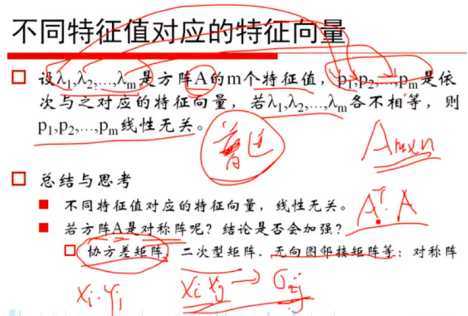 不同特征值对应的特征向量
设λ1,λ2,...,λm是方阵A的m个特征值，p1,p2,...,pm是依
次与之对应的特征向量，若λ1,λ2,...,λm各不相等，则
p1,p2,...,pm线性无关。
普适
Amxn
总结与思考
不同特征值对应的特征向量，线性无关。
若方阵A是对称阵呢？结论是否会加强？
A^T·A
协方差矩阵、二次型矩阵、无向图邻接矩阵等：对称阵
xi·yi
xi xj → σij